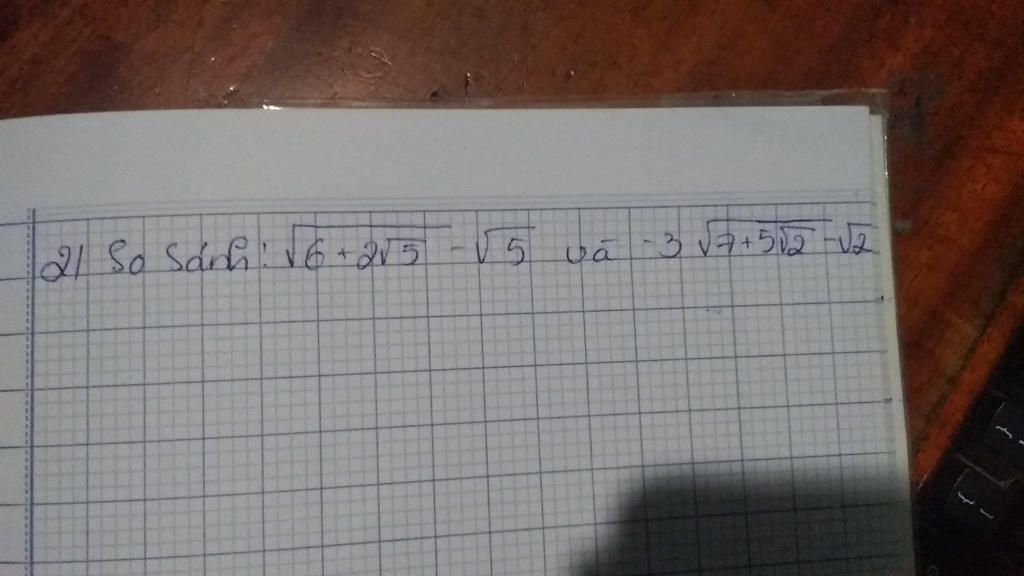 2) So sánh: √(6 + 2√5) - √5 và -3 √(7+5√2) - √2